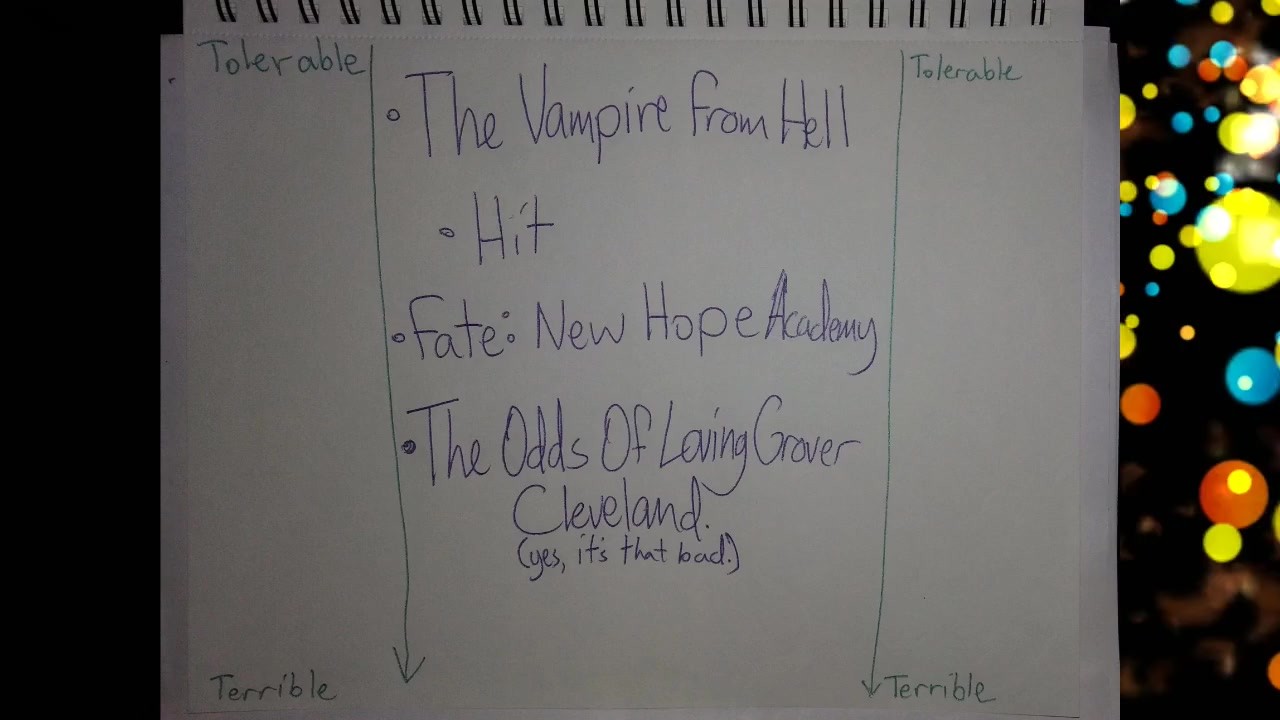 Tolerable
Tolerable
The Vampire From Hell
Hit
Fate: New Hope Academy
The Odds Of Loving Grover
Cleveland.
(yes, it's that bad.)
Terrible
Terrible